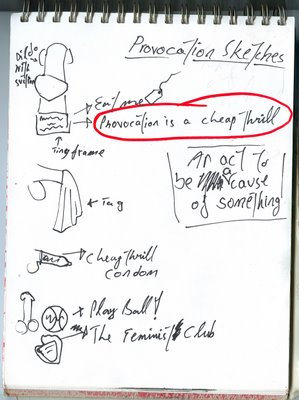 Provocation Sketches
Dildo
with
Eat me
Provocation is a cheap thrill
Tiny frame
An act to
be a cause
of something
Tag
Cheap thrill
condom
Play Ball!
The Feminist Club